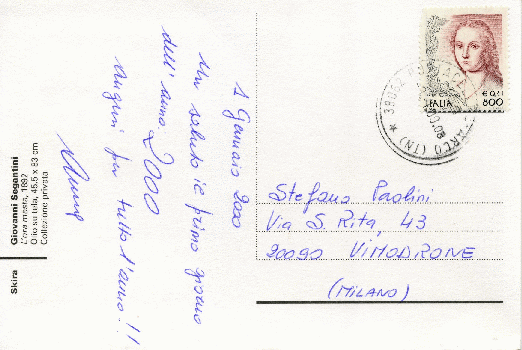 1 Gennaio 2000
Un saluto il primo giorno
dell'anno 2000
Auguri per tutto l'anno!!
Giovanni Segantini
L'ora mesta, 1892
Olio su tela, 45,5 x 83 cm
Collezione privata
Skira
ITALIA
€ 0,41
800
Stefano Paolini
Via S. Rita, 43
20090 VIMODRONE
(MILANO)